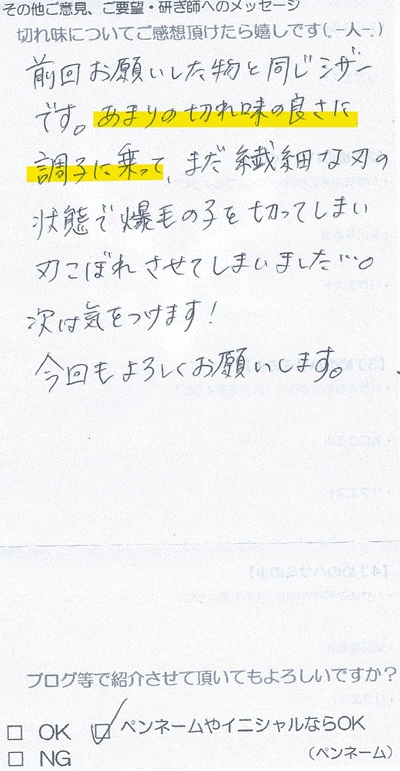 その他ご意見、ご要望・研ぎ師へのメッセージ
切れ味についてご感想頂けたら嬉しです(.-人-.)
前回お願いした物と同じシザー
です。あまりの切れ味の良さに
調子に乗って、まだ繊細な刃の
状態で爆毛の子を切ってしまい
刃こぼれさせてしまいました…。
次は気をつけます!
今回もよろしくお願いします。
ブログ等で紹介させて頂いてもよろしいですか?
□ OK ☑ ペンネームやイニシャルならOK
□ NG (ペンネーム)